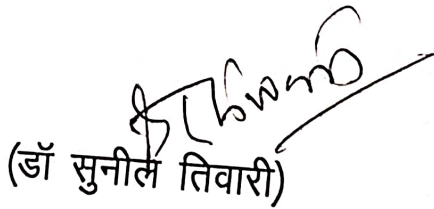 (डॉ सुनील तिवारी)